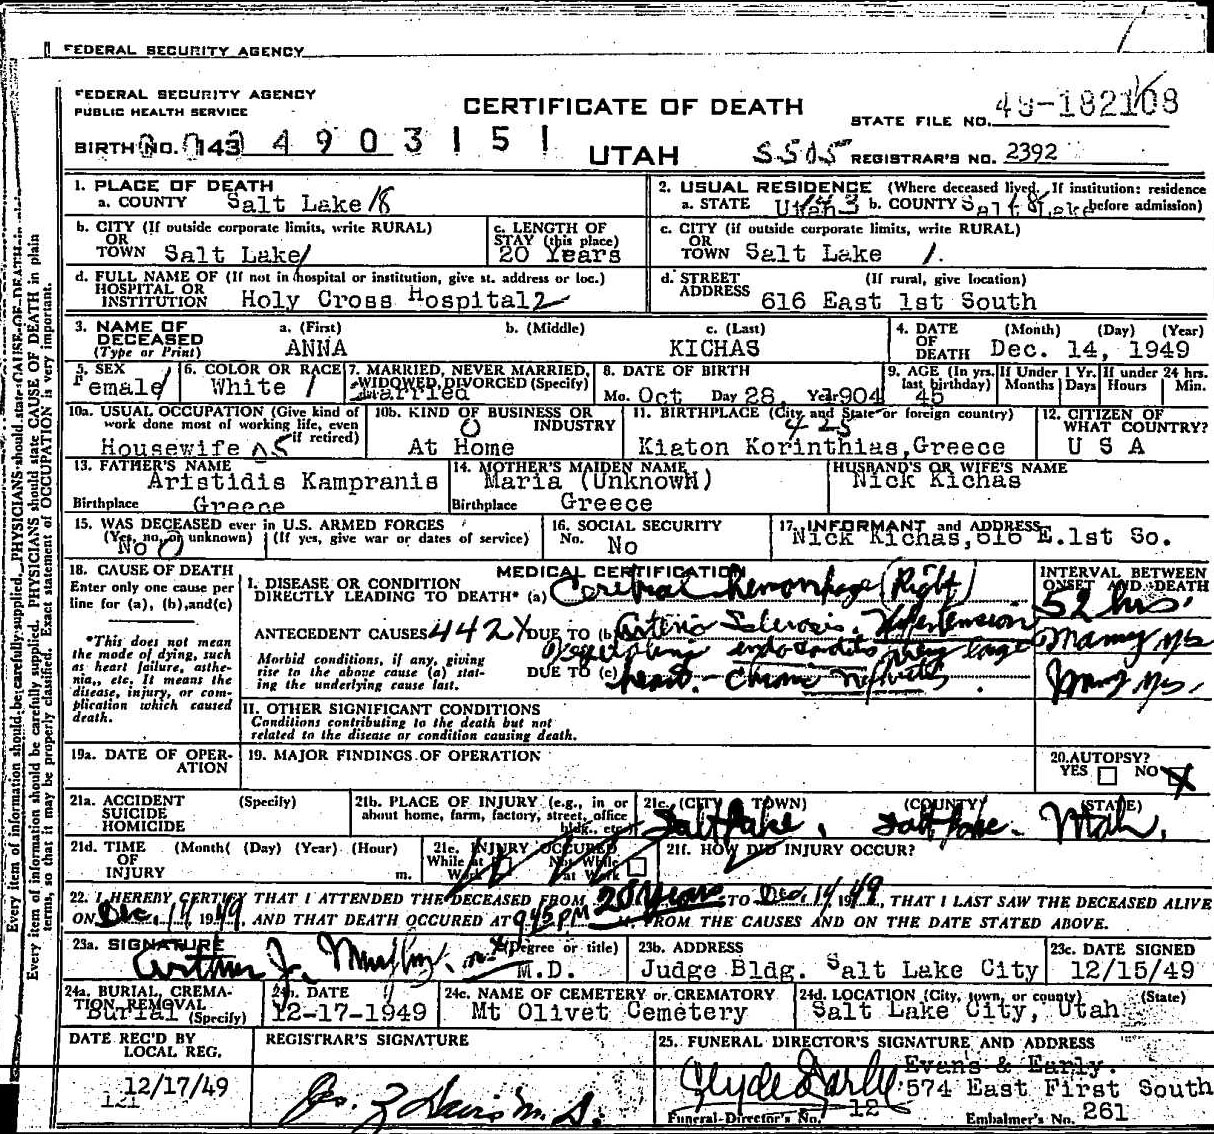 FEDERAL SECURITY AGENCY
FEDERAL SECURITY AGENCY
PUBLIC HEALTH SERVICE
CERTIFICATE OF DEATH
STATE FILE NO. 49-182108
BIRTH NO. 143 4903151
UTAH
REGISTRAR'S NO. 2392
1. PLACE OF DEATH
a. COUNTY Salt Lake 18
2. USUAL RESIDENCE (Where deceased lived. If institution: residence before admission)
a. STATE Utah b. COUNTY Salt Lake
b. CITY (If outside corporate limits, write RURAL) OR TOWN Salt Lake
c. LENGTH OF STAY (this place) 20 Years
c. CITY (if outside corporate limits, write RURAL) OR TOWN Salt Lake
d. FULL NAME OF (If not in hospital or institution, give st. address or loc.) HOSPITAL OR INSTITUTION Holy Cross Hospital 2
d. STREET ADDRESS (If rural, give location) 616 East 1st South
3. NAME OF DECEASED (Type or Print)
a. (First) ANNA
b. (Middle)
c. (Last) KICHAS
4. DATE OF DEATH (Month) (Day) (Year) Dec. 14, 1949
5. SEX Female
6. COLOR OR RACE White
7. MARRIED, NEVER MARRIED, WIDOWED, DIVORCED (Specify) Married
8. DATE OF BIRTH Mo. Oct Day 28, Year 1904
9. AGE (In yrs. last birthday) 45
If Under 1 Yr. Months Days
If under 24 hrs. Hours Min.
10a. USUAL OCCUPATION (Give kind of work done most of working life, even if retired) Housewife
10b. KIND OF BUSINESS OR INDUSTRY At Home
11. BIRTHPLACE (City and State or foreign country) Kiaton Korinthias, Greece
12. CITIZEN OF WHAT COUNTRY? U S A
13. FATHER'S NAME Aristidis Kampranis
Birthplace Greece
14. MOTHER'S MAIDEN NAME Maria (Unknown)
Birthplace Greece
HUSBAND'S OR WIFE'S NAME Nick Kichas
15. WAS DECEASED ever in U.S. ARMED FORCES
(Yes, no, or unknown) (If yes, give war or dates of service)
No
16. SOCIAL SECURITY No. No
17. INFORMANT and ADDRESS Nick Kichas, 616 E. 1st So.
18. CAUSE OF DEATH
Enter only one cause per line for (a), (b), and (c)
*This does not mean the mode of dying, such as heart failure, asthenia,, etc. It means the disease, injury, or complication which caused death.
MEDICAL CERTIFICATION
I. DISEASE OR CONDITION DIRECTLY LEADING TO DEATH* (a) Cerebral hemorrhage (Right)
INTERVAL BETWEEN ONSET AND DEATH
52 hrs.
ANTECEDENT CAUSES 442X DUE TO (b) Arterio Sclerosis. Hypertension
Many yrs
Morbid conditions, if any, giving rise to the above cause (a) stating the underlying cause last.
Vegetating endocarditis very large
DUE TO (c) heart. - Chronic nephritis
Many yrs.
II. OTHER SIGNIFICANT CONDITIONS
Conditions contributing to the death but not related to the disease or condition causing death.
19a. DATE OF OPERATION
19. MAJOR FINDINGS OF OPERATION
20. AUTOPSY? YES NO X
21a. ACCIDENT SUICIDE HOMICIDE (Specify)
21b. PLACE OF INJURY (e.g., in or about home, farm, factory, street, office bldg., etc.)
21c. (CITY OR TOWN) (COUNTY) (STATE)
Salt Lake, Salt Lake. Utah.
21d. TIME OF INJURY (Month) (Day) (Year) (Hour) m.
21e. INJURY OCCURED While at Work Not While at Work
21f. HOW DID INJURY OCCUR?
22. I HEREBY CERTIFY THAT I ATTENDED THE DECEASED FROM 20 Years TO Dec. 14 1949, THAT I LAST SAW THE DECEASED ALIVE
ON Dec. 14 1949, AND THAT DEATH OCCURED AT 9:45 P.M. M. FROM THE CAUSES AND ON THE DATE STATED ABOVE.
23a. SIGNATURE Arthur J. Murphy (Degree or title) M.D.
23b. ADDRESS Judge Bldg. Salt Lake City
23c. DATE SIGNED 12/15/49
24a. BURIAL, CREMATION, REMOVAL (Specify) Burial
24b. DATE 12-17-1949
24c. NAME OF CEMETERY or CREMATORY Mt Olivet Cemetery
24d. LOCATION (City, town, or county) (State) Salt Lake City, Utah
DATE REC'D BY LOCAL REG. 12/17/49
REGISTRAR'S SIGNATURE
25. FUNERAL DIRECTOR'S SIGNATURE AND ADDRESS
Clyde Early Evans & Early.
574 East First South
Funeral-Director's No. 12
Embalmer's No. 261
Every item of information should be carefully supplied. PHYSICIANS should state CAUSE OF DEATH in plain terms, so that it may be properly classified. Exact statement of OCCUPATION is very important.